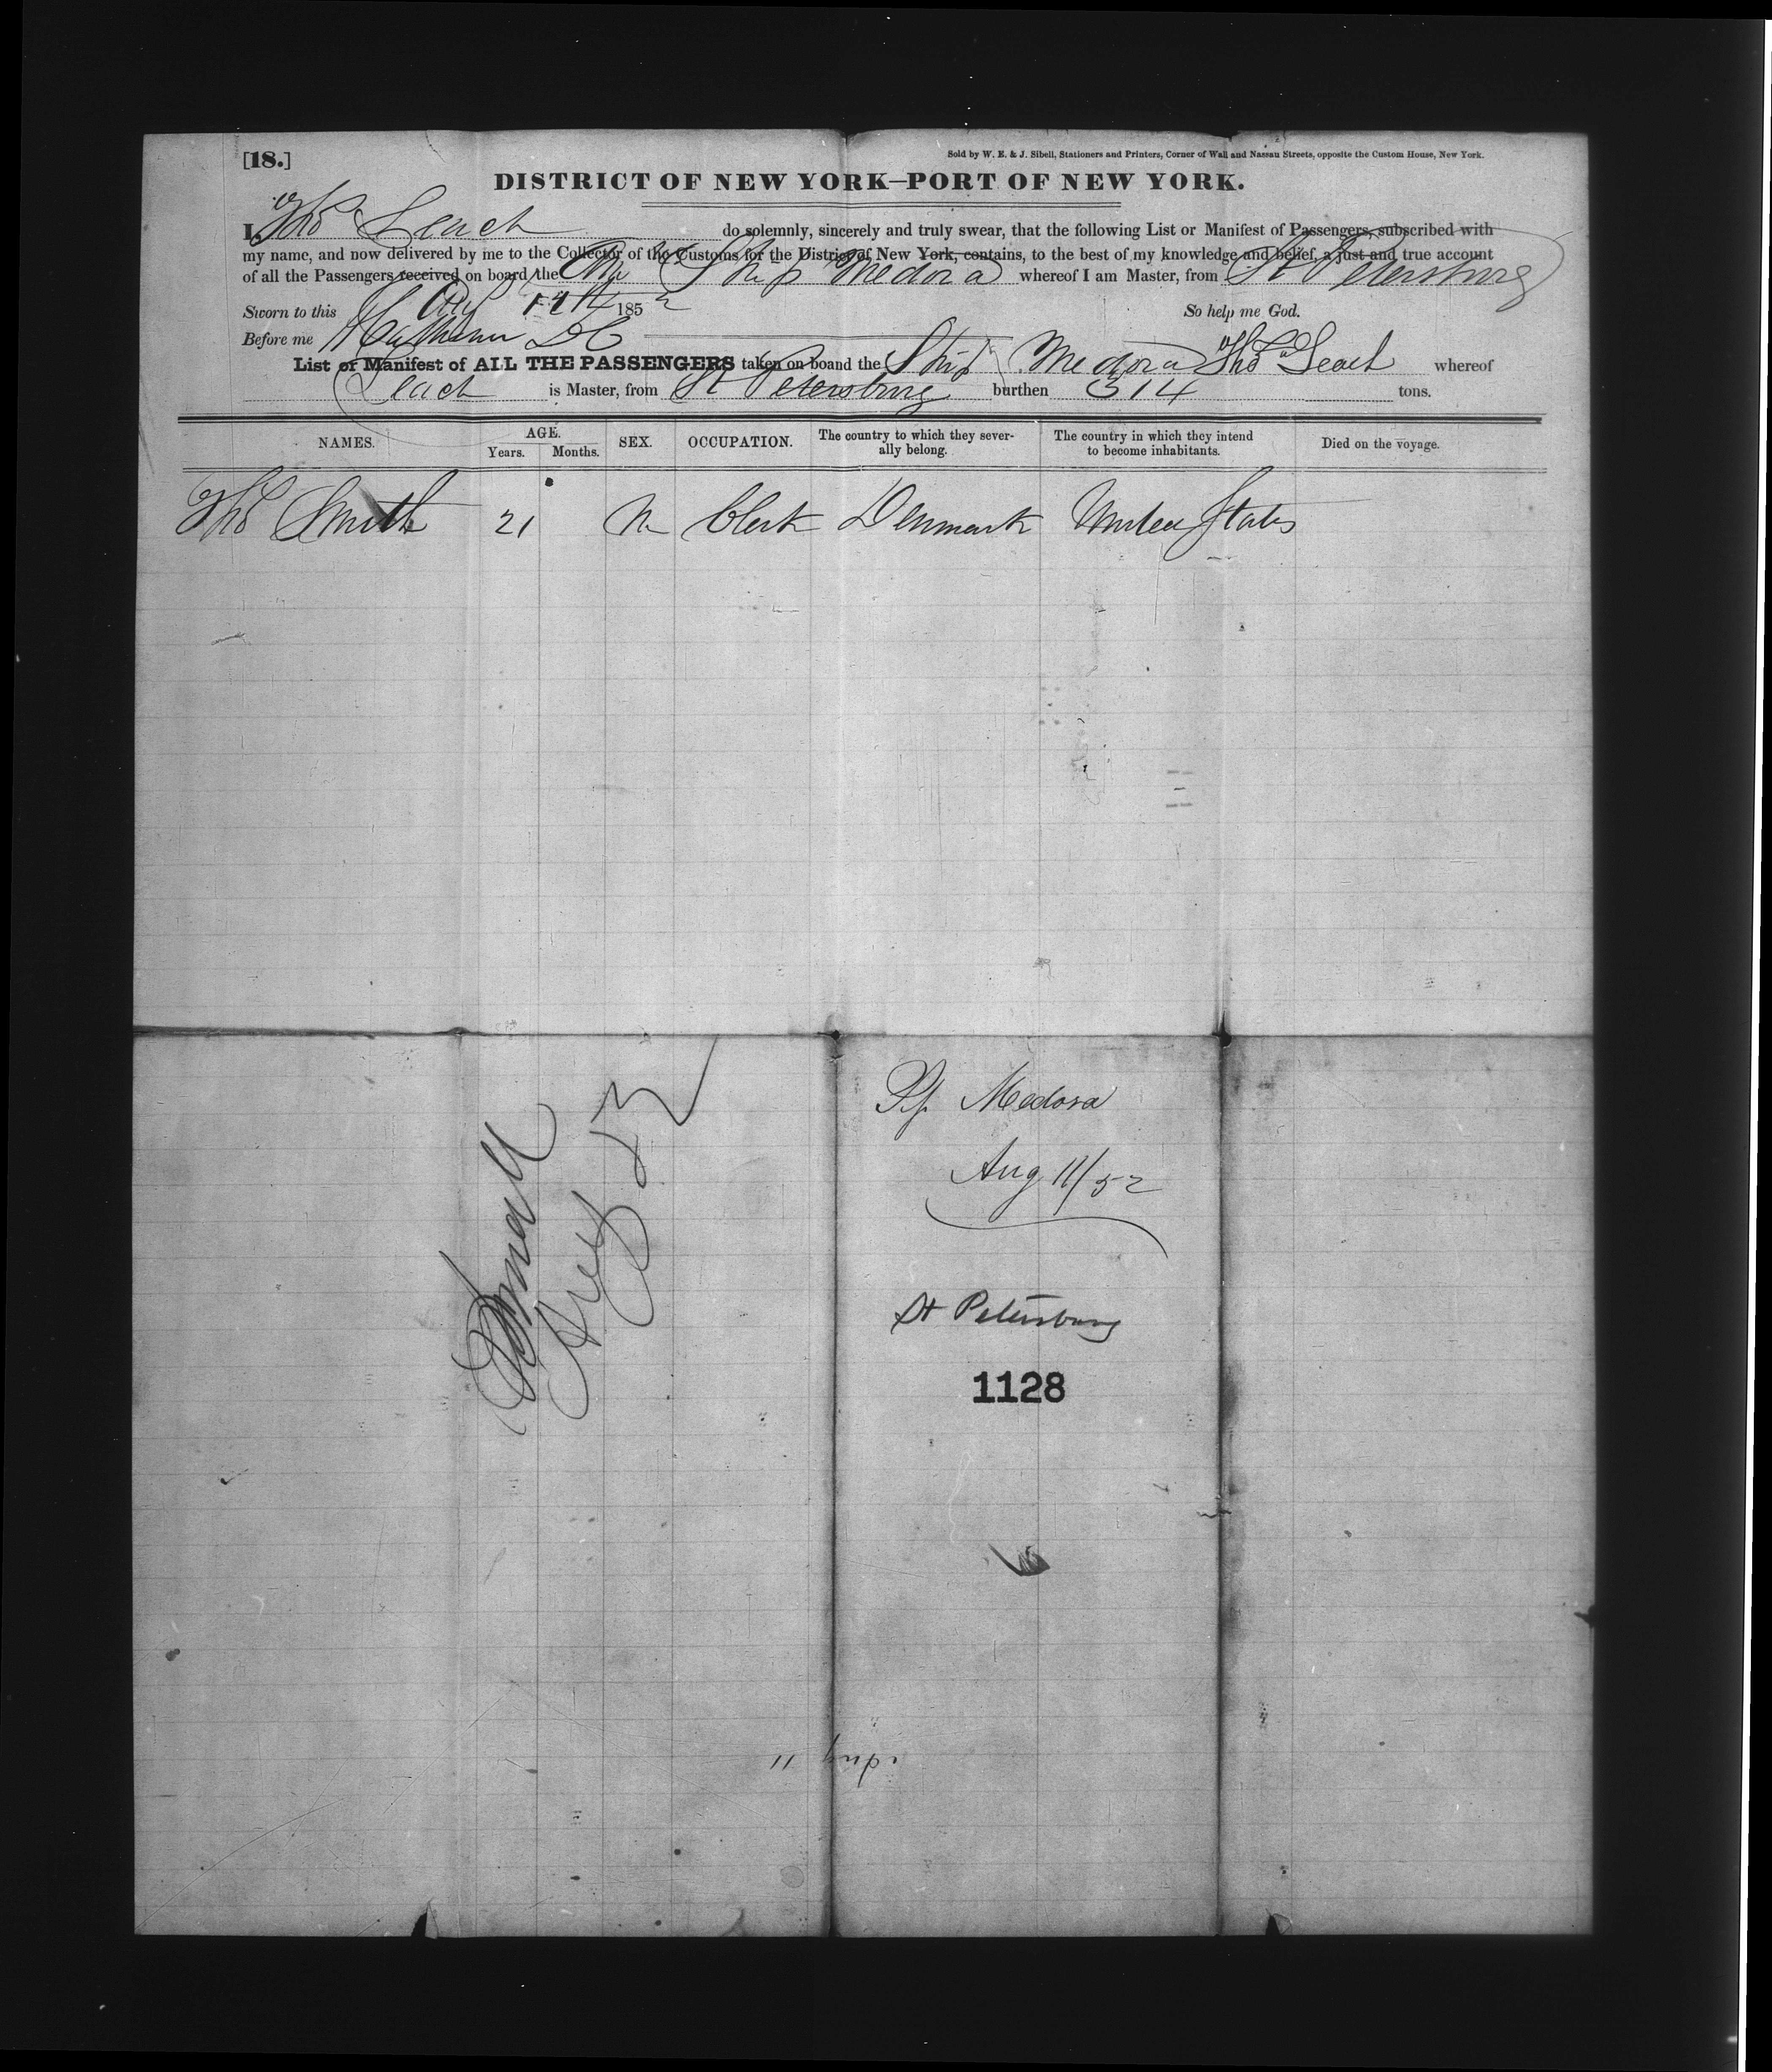 [18.]
Sold by W. E. & J. Sibell, Stationers and Printers, Corner of Wall and Nassau Streets, opposite the Custom House, New York.
DISTRICT OF NEW YORK—PORT OF NEW YORK.
I, Thos Leach do solemnly, sincerely and truly swear, that the following List or Manifest of Passengers, subscribed with
my name, and now delivered by me to the Collector of the Customs for the District of New York, contains, to the best of my knowledge and belief, a just and true account
of all the Passengers received on board the Ship Medora whereof I am Master, from St Petersburg
Sworn to this Aug 11th 1852 So help me God.
Before me
List or Manifest of ALL THE PASSENGERS taken on board the Ship Medora Thos Leach whereof
Leach is Master, from St Petersburg burthen 314 tons.
NAMES. AGE. SEX. OCCUPATION. The country to which they severally belong. The country in which they intend to become inhabitants. Died on the voyage.
Years. Months.
Thos Smith 21 M Clerk Denmark United States
Medora
Aug 11/52
St Petersburg
1128
Aug 11